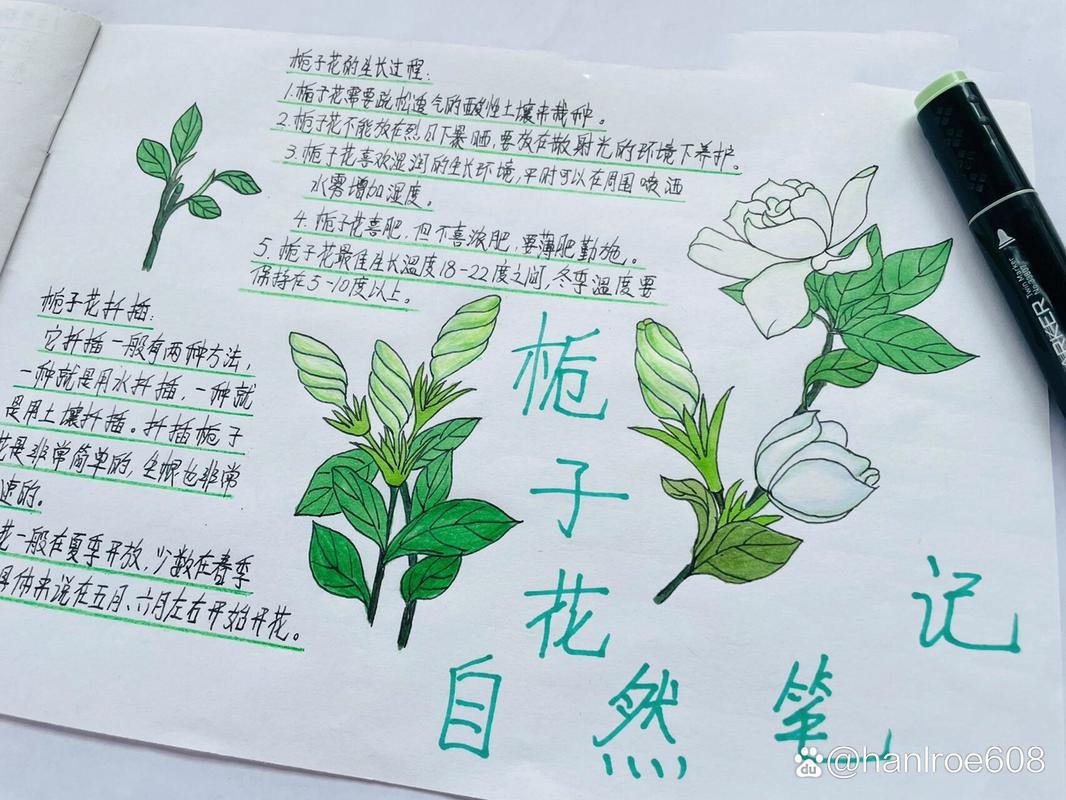 栀子花的生长过程:
1.栀子花需要疏松透气的酸性土壤来栽种。
2.栀子花不能放在烈日下暴晒,要放在散射光的环境下养护。
3.栀子花喜欢湿润的生长环境,平时可以在周围喷洒
水雾增加湿度。
4.栀子花喜肥,但不喜浓肥,要薄肥勤施。
5.栀子花最佳生长温度18-22度之间,冬季温度要
保持在5-10度以上。
栀子花扦插:
它扦插一般有两种方法,
一种就是用水扦插,一种就
是用土壤扦插。扦插栀子
花是非常简单的,生根也非常
速的。
花一般在夏季开放,少数在春季
具体来说在五月、六月左右开始开花。
栀
子
花
自然笔记
MARKER
Twin Marker
du @hanlroe608